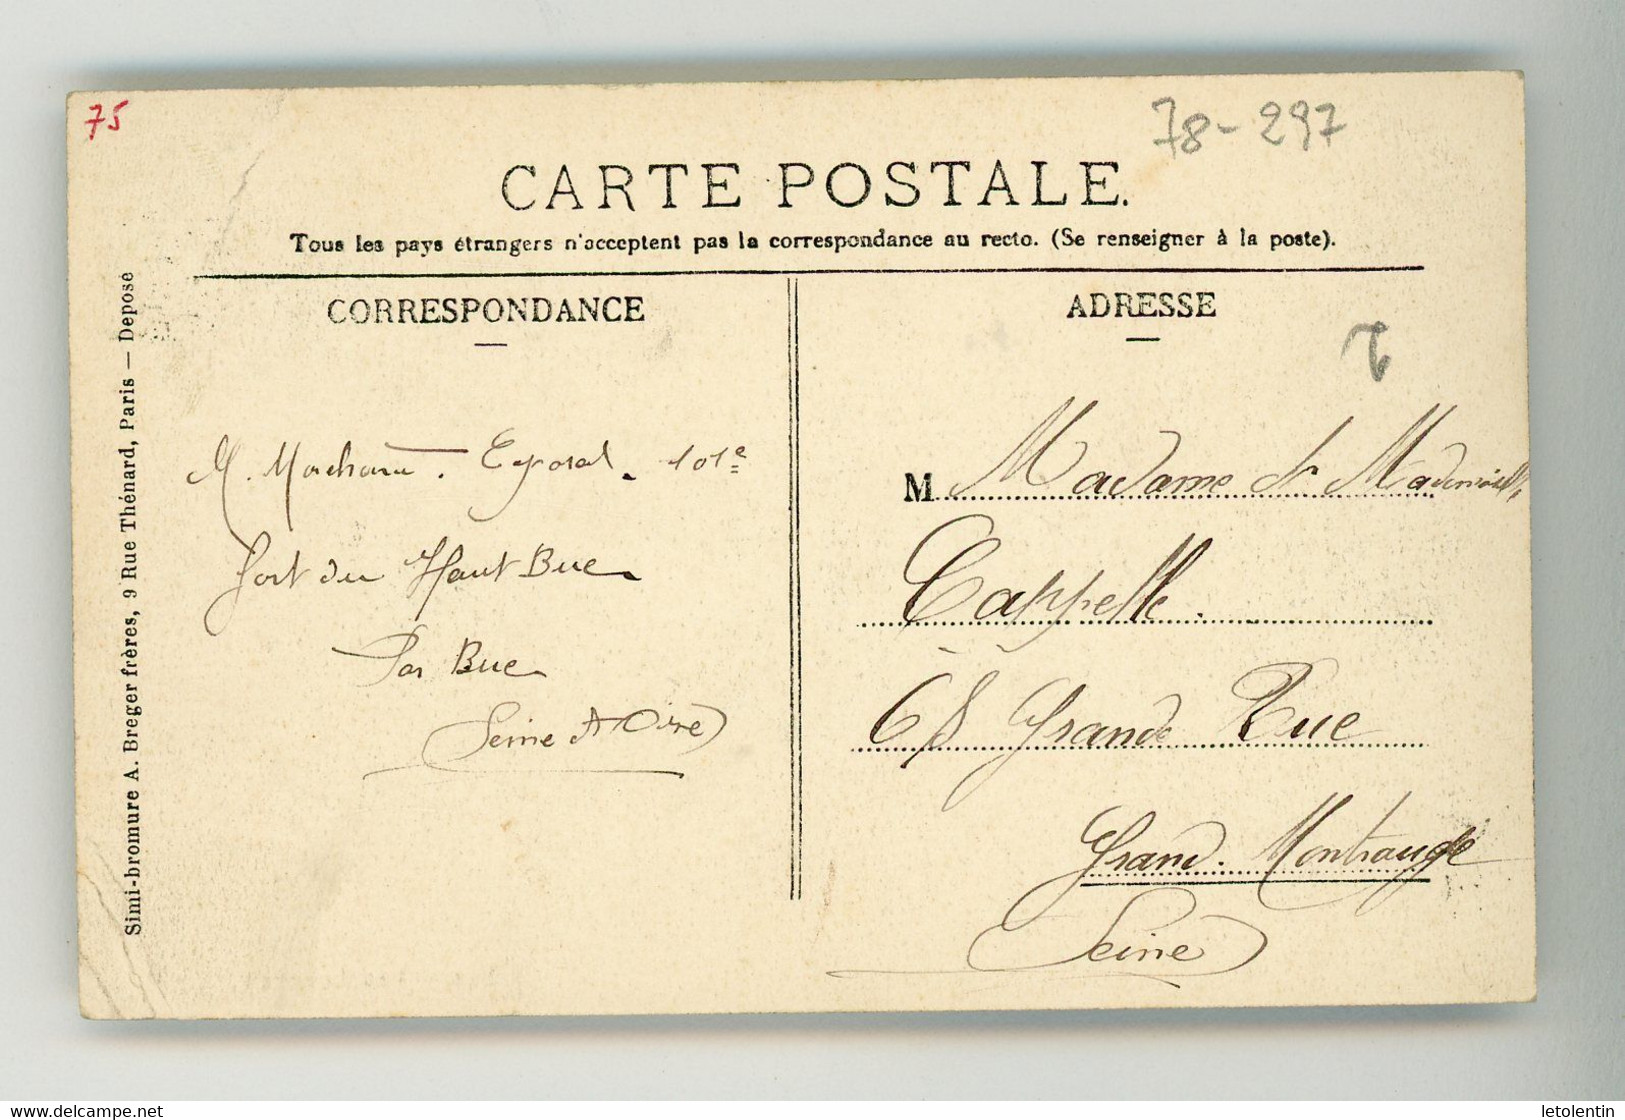 75
78-297
CARTE POSTALE.
Tous les pays étrangers n'acceptent pas la correspondance au recto. (Se renseigner à la poste).
CORRESPONDANCE
M. 101e
Fort du Haut Buc
Par Buc
Seine et Oise
ADRESSE
M Madame et Mademoiselle
Cappelle
68 Grande Rue
Grand-Montrouge
Seine
Simi-bromure A. Breger frères, 9 Rue Thénard, Paris — Deposé
https://www.delcampe.net
letolentin